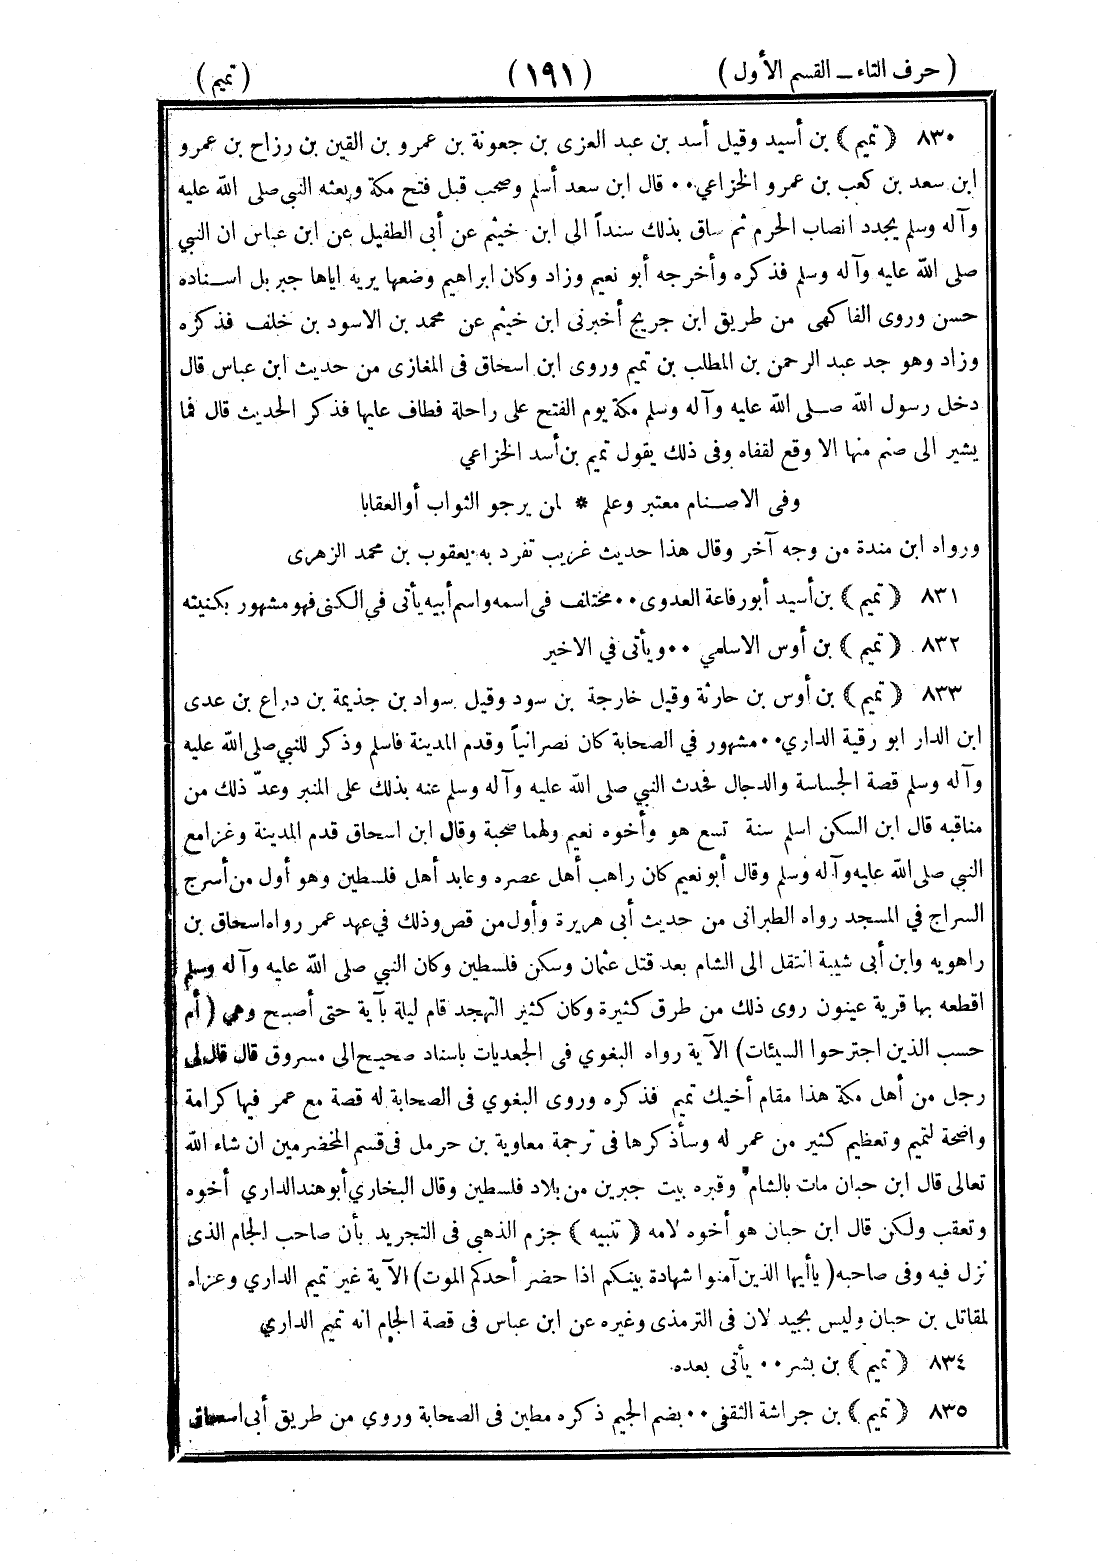 ( حرف التاء ــ القسم الأول )
( ١٩١ )
( تميم )
٨٣٠ ( تميم ) بن أسيد وقيل أسد بن عبد العزى بن جعونة بن عمرو بن القين بن رزاح بن عمرو
ابن سعد بن كعب بن عمرو الخزاعي ٠٠ قال ابن سعد أسلم وصحب قبل فتح مكة وبعثه النبي صلى الله عليه
وآله وسلم يجدد انصاب الحرم ثم ساق بذلك سنداً الى ابن خيثم عن أبى الطفيل عن ابن عباس ان النبي
صلى الله عليه وآله وسلم فذكره وأخرجه أبو نعيم وزاد وكان ابراهيم وضعها يريه اياها جبريل اسناده
حسن وروى الفاكهى من طريق ابن جريج أخبرنى ابن خيثم عن محمد بن الاسود بن خلف فذكره
وزاد وهو جد عبد الرحمن بن المطلب بن تميم وروى ابن اسحاق فى المغازى من حديث ابن عباس قال
دخل رسول الله صلى الله عليه وآله وسلم مكة يوم الفتح على راحلة فطاف عليها فذكر الحديث قال فما
يشير الى صنم منها الا وقع لقفاه وفى ذلك يقول تميم بن أسد الخزاعي
وفى الاصنام معتبر وعلم * لمن يرجو الثواب أو العقابا
ورواه ابن مندة من وجه آخر وقال هذا حديث غريب تفرد به يعقوب بن محمد الزهرى
٨٣١ ( تميم ) بن أسيد أبو رفاعة العدوى ٠٠ مختلف فى اسمه واسم أبيه يأتى في الكنى فهو مشهور بكنيته
٨٣٢ ( تميم ) بن أوس الاسلمي ٠٠ ويأتى في الاخير
٨٣٣ ( تميم ) بن أوس بن حارثة وقيل خارجة بن سود وقيل سواد بن جذيمة بن دراع بن عدى
ابن الدار ابو رقية الداري ٠٠ مشهور في الصحابة كان نصرانياً وقدم المدينة فاسلم وذكر للنبي صلى الله عليه
وآله وسلم قصة الجساسة والدجال فحدث النبي صلى الله عليه وآله وسلم عنه بذلك على المنبر وعدّ ذلك من
مناقبه قال ابن السكن اسلم سنة تسع هو وأخوه نعيم ولهما صحبة وقال ابن اسحاق قدم المدينة وغزا مع
النبي صلى الله عليه وآله وسلم وقال أبو نعيم كان راهب أهل عصره وعابد أهل فلسطين وهو أول من أسرج
السراج في المسجد رواه الطبرانى من حديث أبى هريرة وأول من قص وذلك في عهد عمر رواه اسحاق بن
راهويه وابن أبى شيبة انتقل الى الشام بعد قتل عثمان وسكن فلسطين وكان النبي صلى الله عليه وآله وسلم
اقطعه بها قرية عينون روى ذلك من طرق كثيرة وكان كثير التهجد قام ليلة بآية حتى أصبح وهي ( أم
حسب الذين اجترحوا السيئات ) الآية رواه البغوي فى الجعديات باسناد صحيح الى مسروق قال قال لى
رجل من أهل مكة هذا مقام أخيك تميم فذكره وروى البغوي فى الصحابة له قصة مع عمر فيها كرامة
واضحة لتميم وتعظيم كثير من عمر له وسأذكرها فى ترجمة معاوية بن حرمل فى قسم المخضرمين ان شاء الله
تعالى قال ابن حبان مات بالشام وقبره ببيت جبرين من بلاد فلسطين وقال البخاري أبو هند الداري أخوه
وتعقب ولكن قال ابن حبان هو أخوه لامه ( تنبيه ) جزم الذهبي فى التجريد بأن صاحب الجام الذى
نزل فيه وفى صاحبه ( ياأيها الذين آمنوا شهادة بينكم اذا حضر أحدكم الموت ) الآية غير تميم الداري وعزاه
لمقاتل بن حبان وليس بجيد لان فى الترمذى وغيره عن ابن عباس فى قصة الجام انه تميم الداري
٨٣٤ ( تميم ) بن بشر ٠٠ يأتى بعده
٨٣٥ ( تميم ) بن جراشة الثقفى ٠٠ بضم الجيم ذكره مطين فى الصحابة وروي من طريق أبى اسحاق